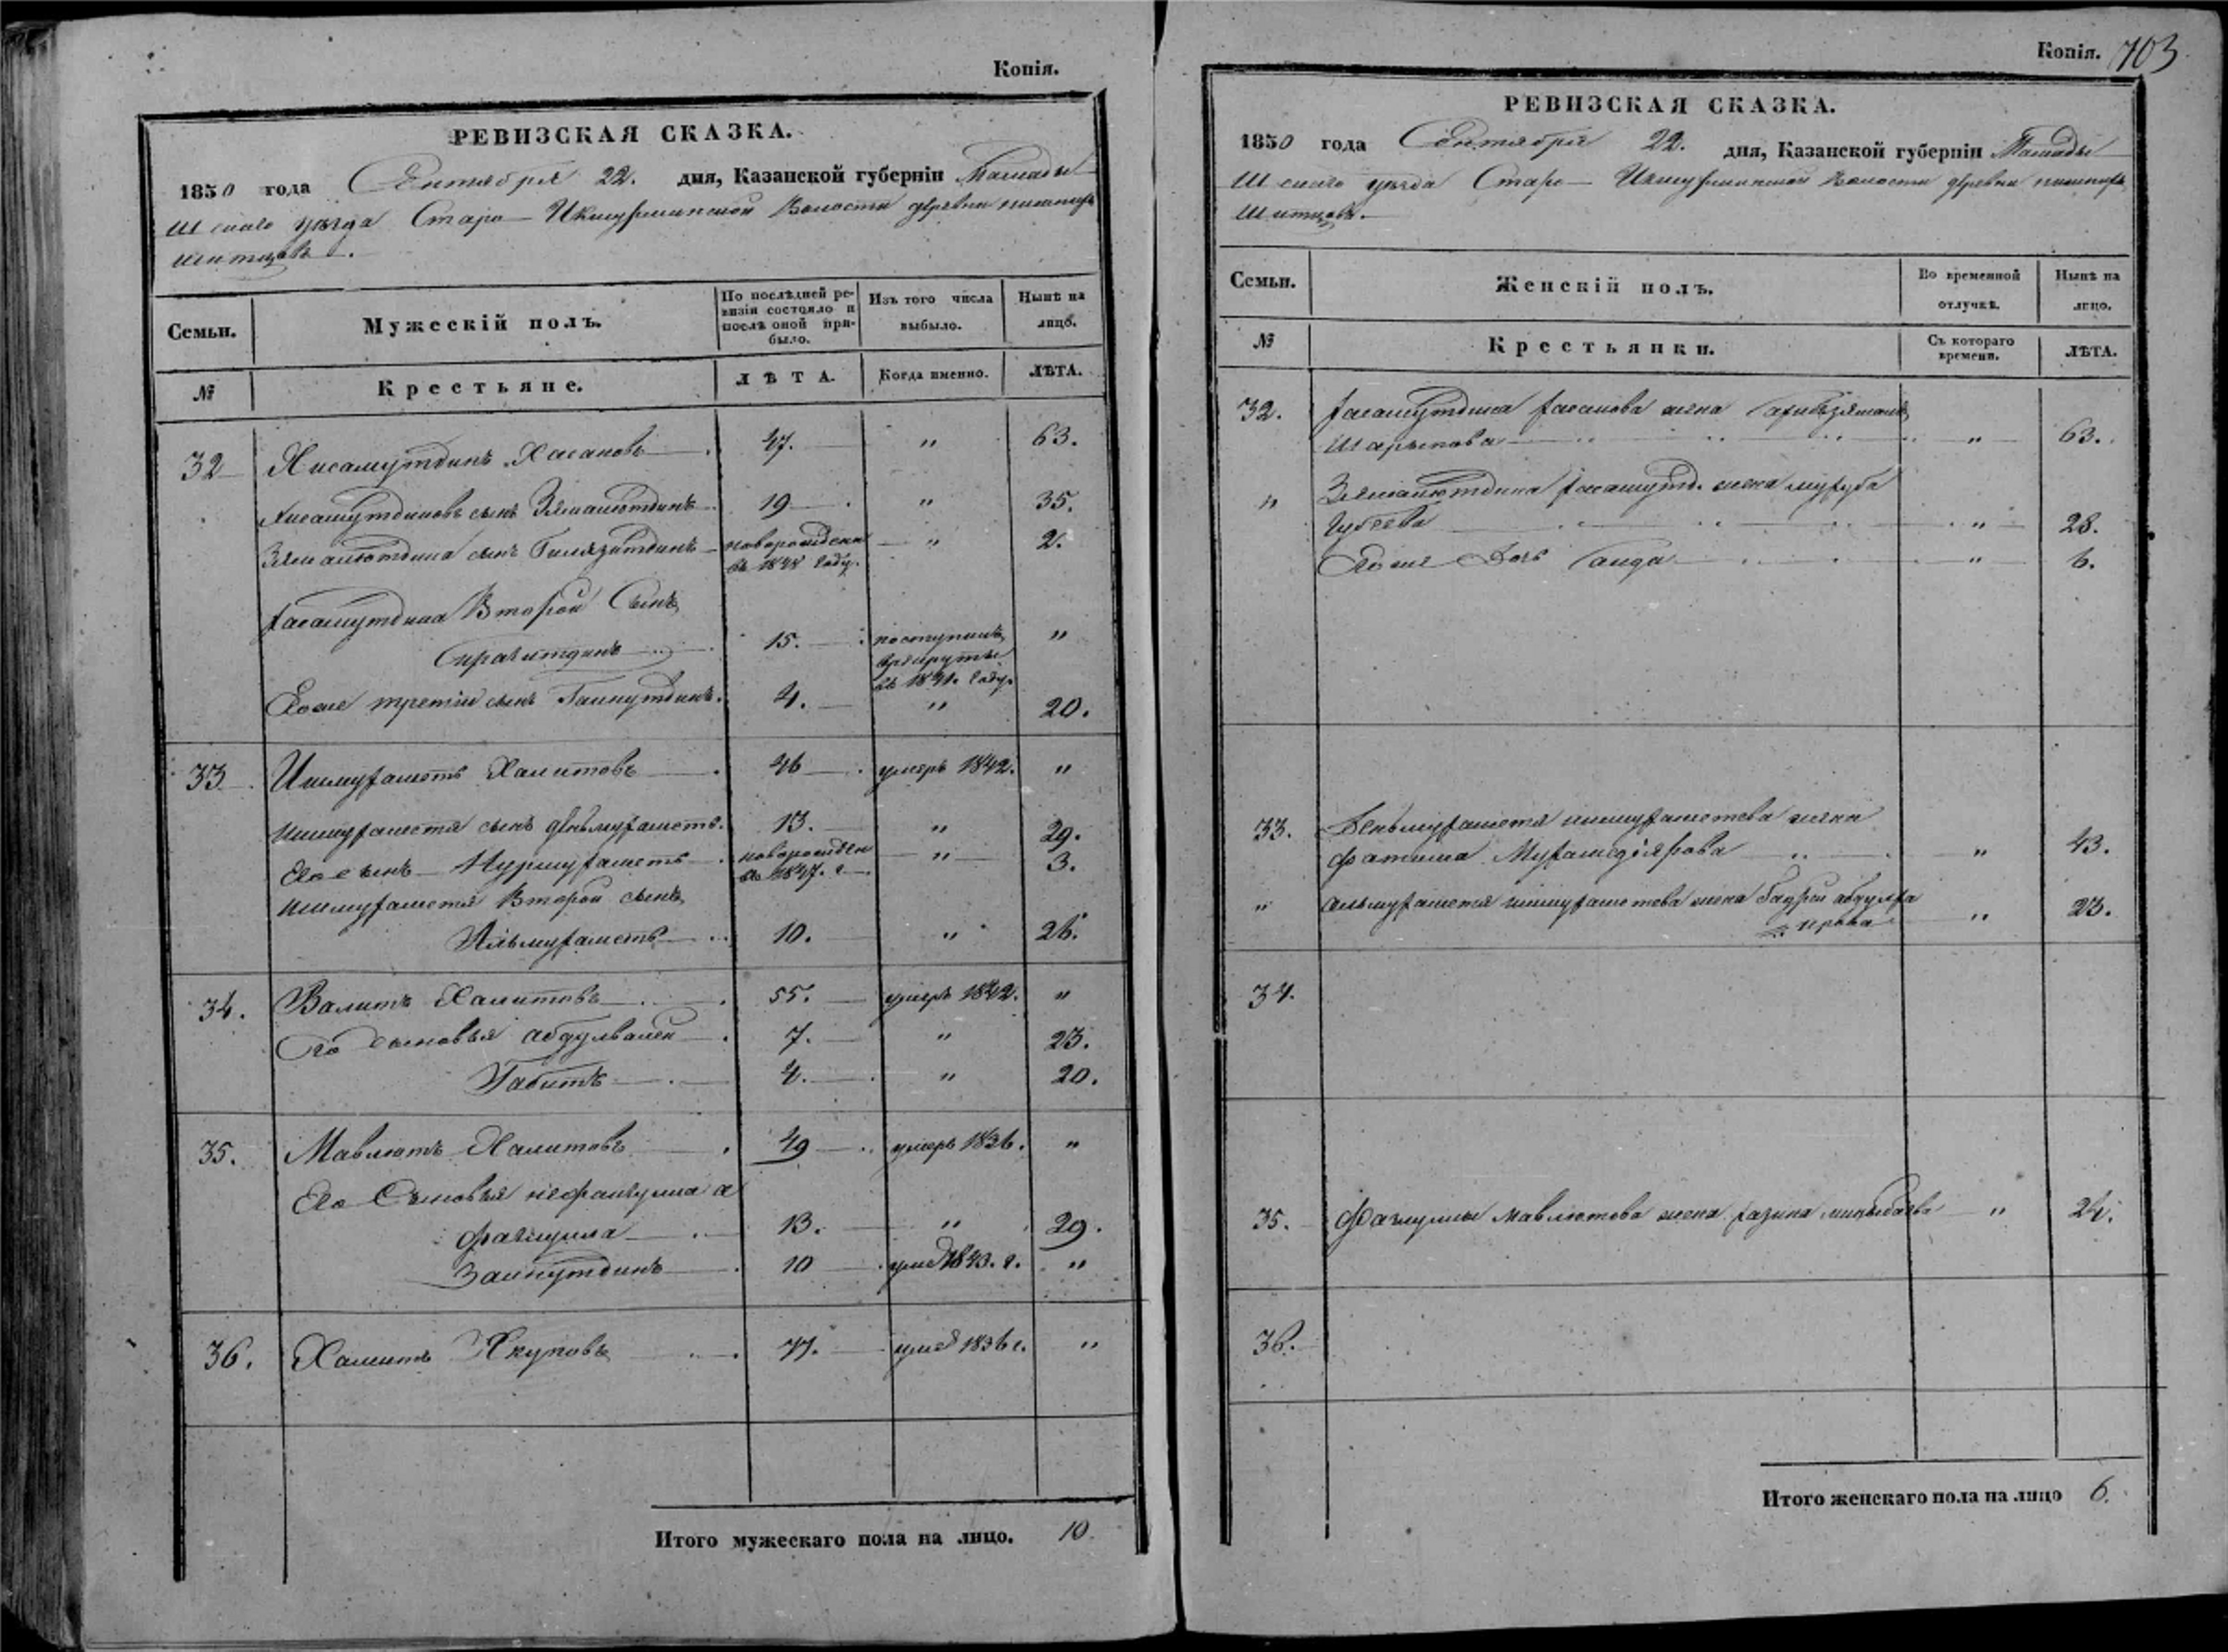 Копія.
РЕВИЗСКАЯ СКАЗКА.
1850 года Сентября 22. дня, Казанской губерніи Мамады
шскаго уѣзда Старо-Икшурминской Волости деревни
Семьи. Мужескій полъ. По послѣдней ре-визіи состояло и послѣ оной при-было. Изъ того числа выбыло. Нынѣ на лицо.
№ Крестьяне. ЛѢТА. Когда именно. ЛѢТА.
32 Хисамутдинъ Хасановъ 47. " 63.
Хисамутдиновъ сынъ Зямалютдинъ 19 " 35.
Зямалютдина сынъ Гилязитдинъ новорожденъ " 2.
въ 1848 году.
Хасамутдина Второй Сынъ
Сиразитдинъ 15. поступилъ "
врекруты
въ 1841. году.
Его же третій сынъ Гаинутдинъ. 4. " 20.
33 Ишмухаметъ Халитовъ 46 умеръ 1842. "
Ишмухаметя сынъ Деньмухаметъ. 13. " 29.
Его сынъ Нурмухаметъ новорожден " 3.
въ 1847. г.
Ишмухаметя Второй сынъ
Альмухаметъ 10. " 26.
34. Валитъ Халитовъ 55. умеръ 1842. "
Его Сыновья Абдулвалей 7. " 23.
Габитъ 4. " 20.
35. Мавлютъ Халитовъ 49 умеръ 1836. "
Его Сыновья
13. " 29.
Заинутдинъ 10 умеръ 1843. г. "
36. Халитъ Якуповъ 77. умер 1836 г. "
Итого мужескаго пола на лицо. 10.
Копія. 703
РЕВИЗСКАЯ СКАЗКА.
1850 года Сентября 22. дня, Казанской губерніи Мамады
шскаго уѣзда Старо-Икшурминской Волости деревни
Семьи. Женскій полъ. Во временной отлучкѣ. Нынѣ на лицо.
№ Крестьянки. Съ котораго времени. ЛѢТА.
32. Хасамутдина Хасанова жена
Шарыпова " 63.
" Зямалютдина Хасамутд. жена
" 28.
Его же Дочь Саида " 6.
33. Деньмухаметя Ишмухаметева жена
Фатима " 43.
" Альмухаметя Ишмухаметева жена
" 23.
34.
35. Мавлютова жена " 24.
36.
Итого женскаго пола на лицо 6.